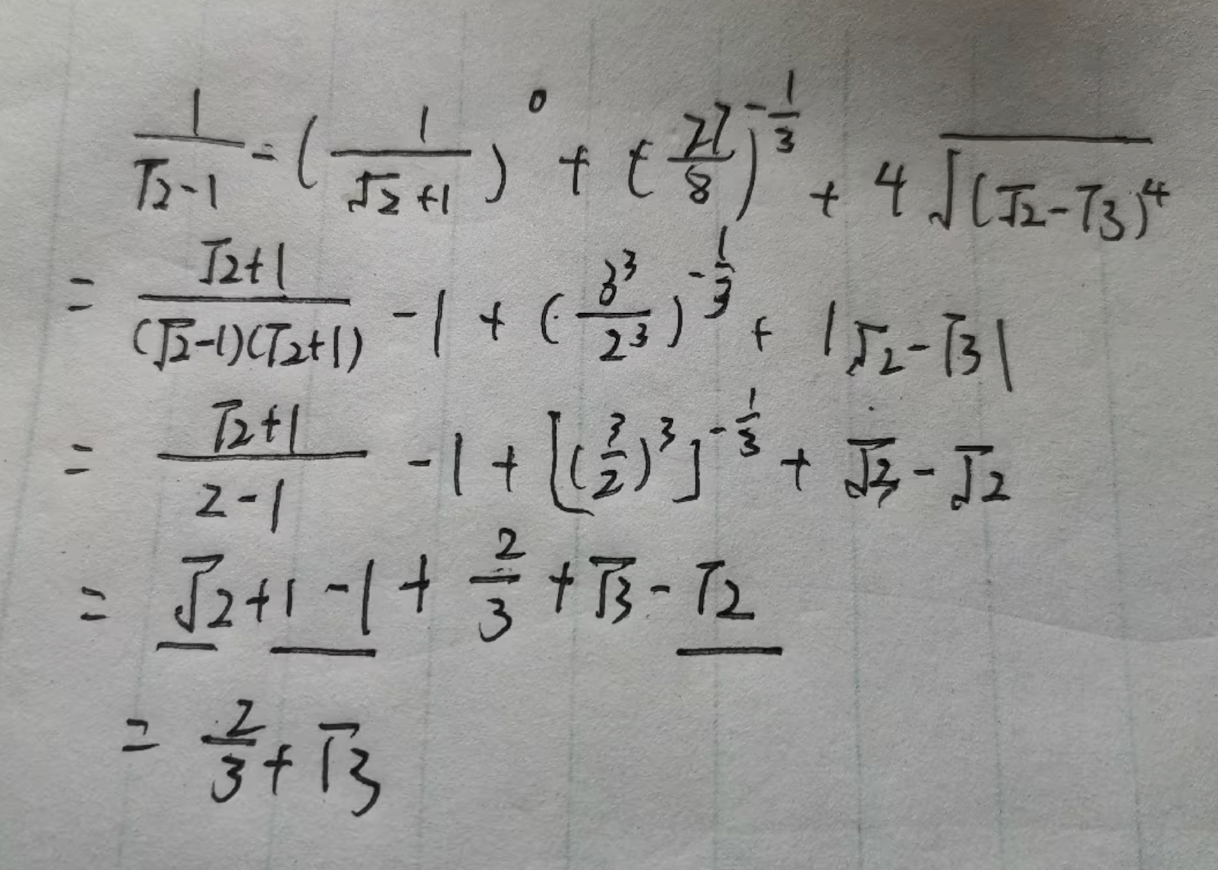 1/(√2-1) - (1/(√2+1))^0 + (27/8)^(-1/3) + 4√((√2-√3)^4)
= (√2+1)/((√2-1)(√2+1)) - 1 + (3^3/2^3)^(-1/3) + |√2-√3|
= (√2+1)/(2-1) - 1 + [(3/2)^3]^(-1/3) + √3 - √2
= √2+1-1 + 2/3 + √3 - √2
= 2/3 + √3